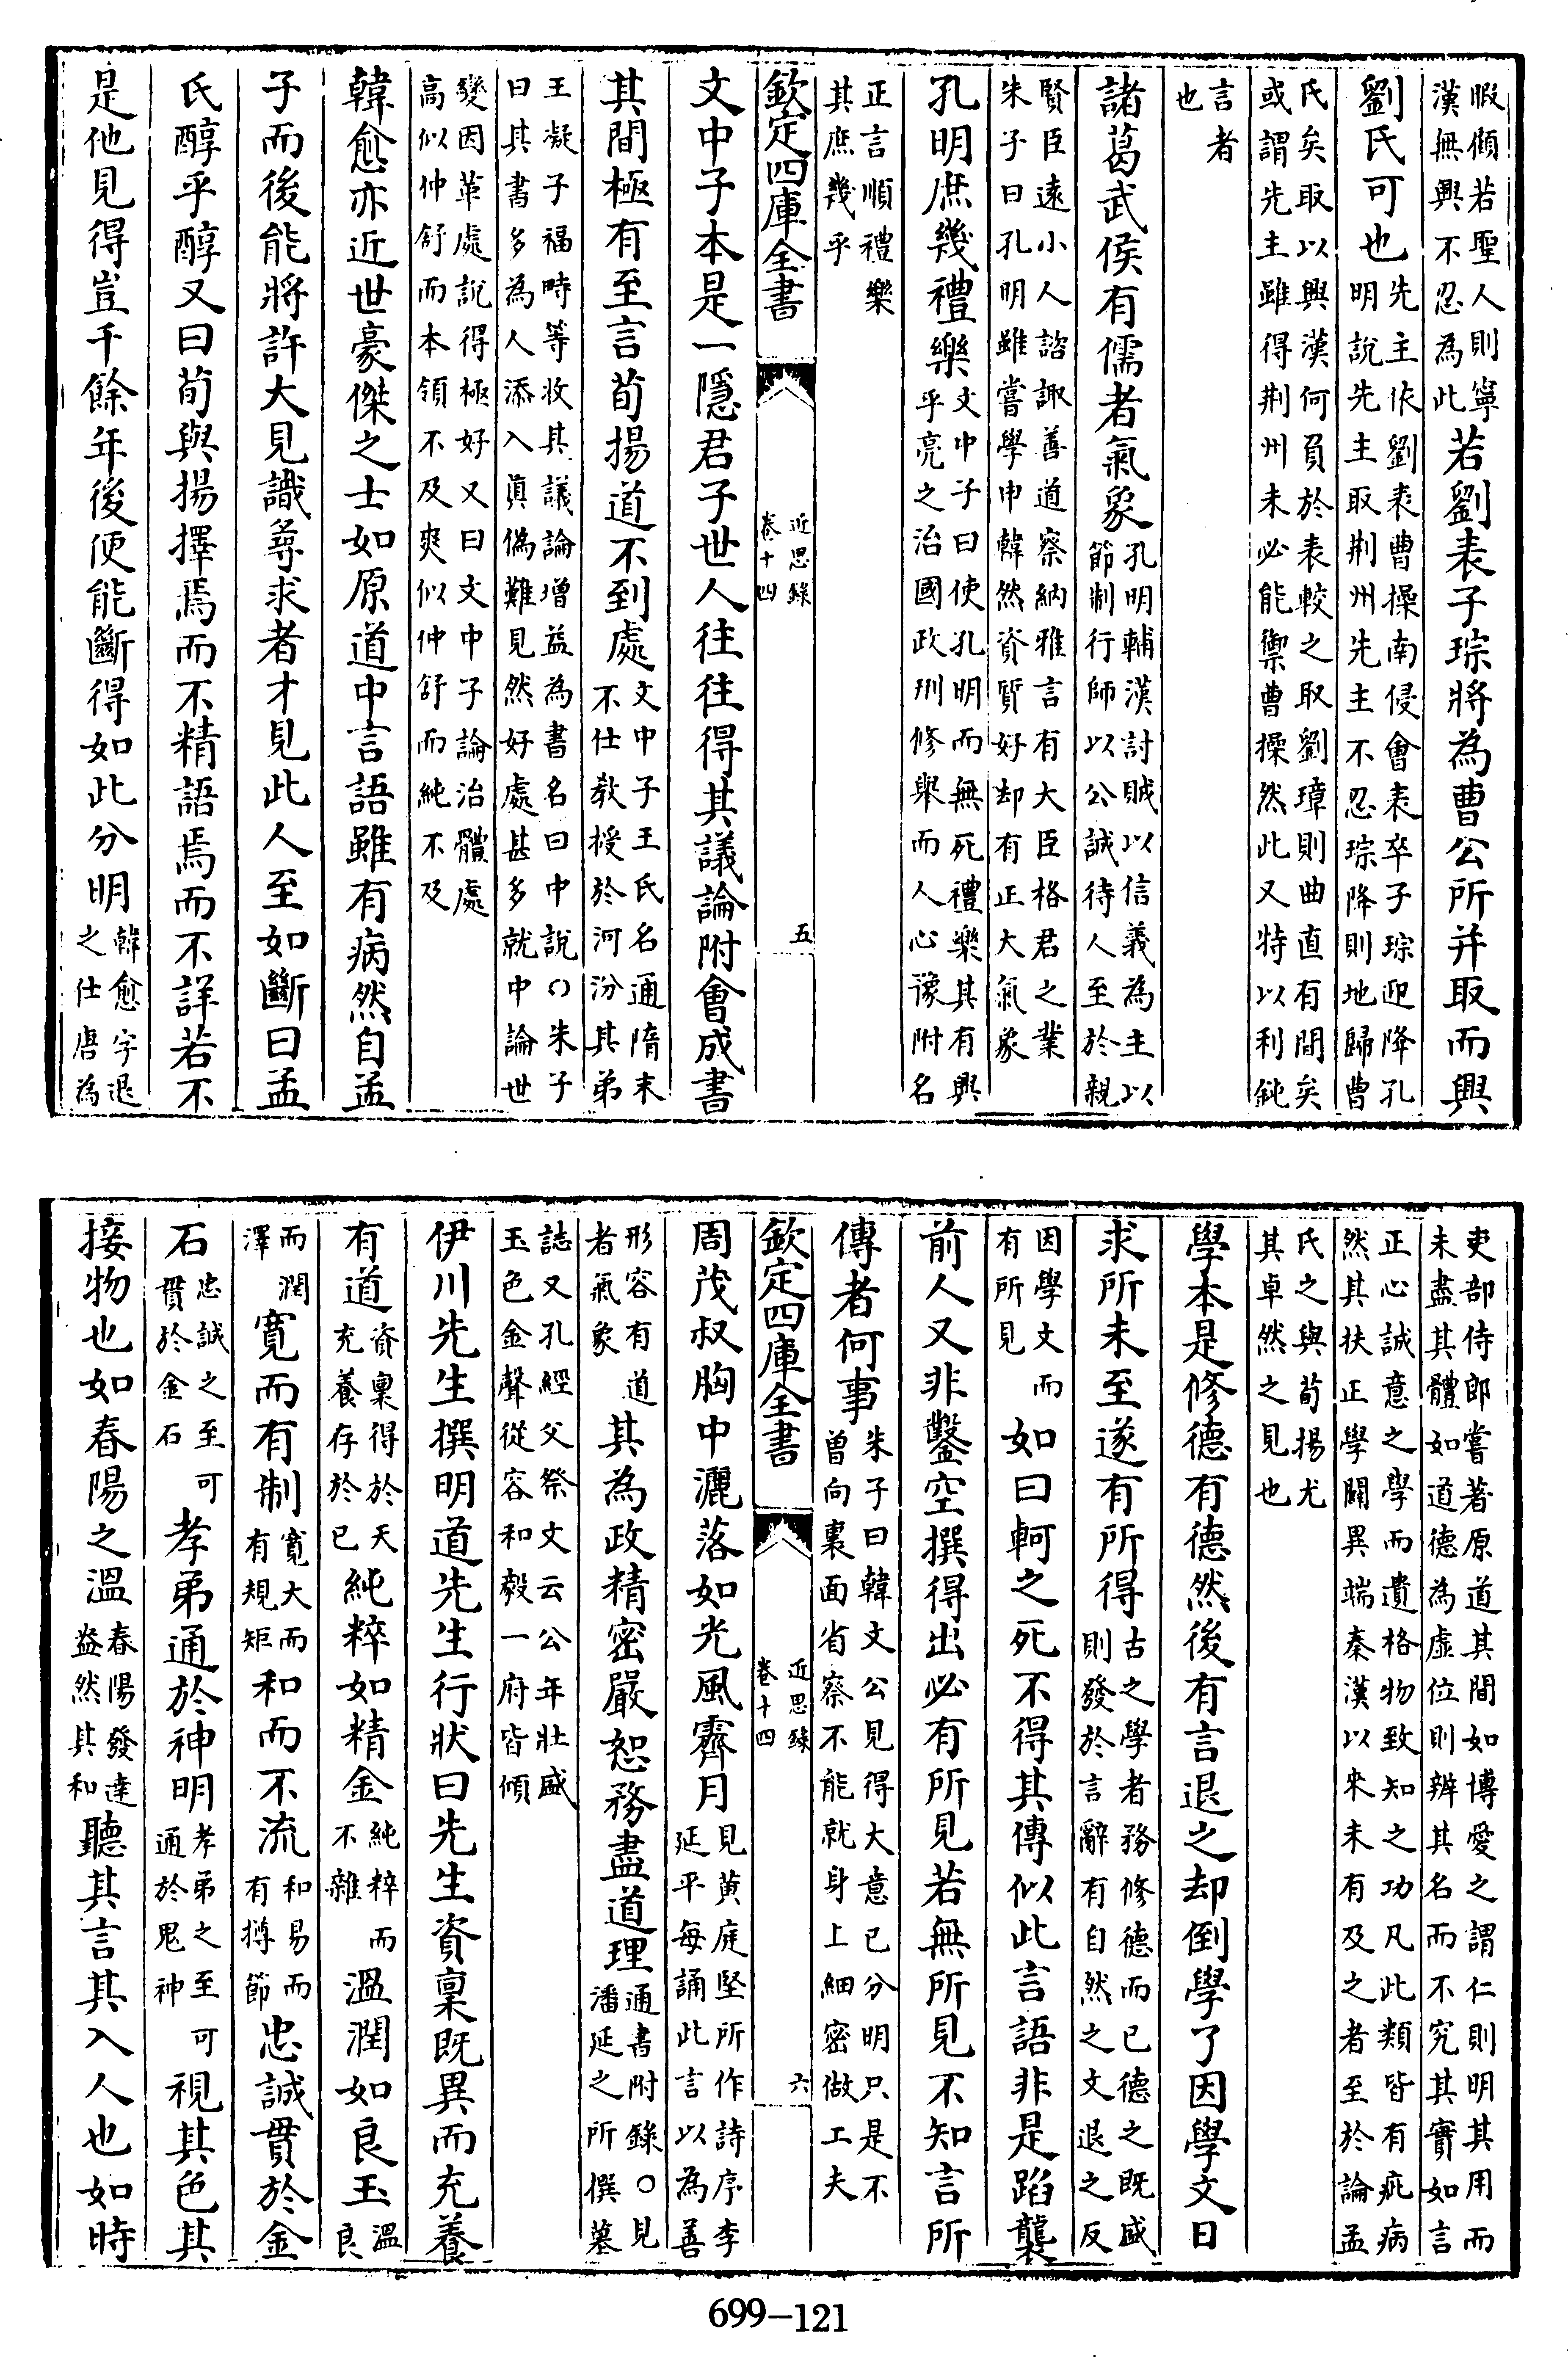 暇顧若聖人則寧
漢無興不忍為此
若劉表子琮將為曹公所并取而興
劉氏可也
先主依劉表曹操南侵會表卒子琮迎降孔
明說先主取荆州先主不忍琮降則地歸曹
氏矣取以興漢何負於表較之取劉璋則曲直有間矣
或謂先主雖得荆州未必能禦曹操然此又特以利鈍
言者
也
諸葛武侯有儒者氣象
孔明輔漢討賊以信義為主以
節制行師以公誠待人至於親
賢臣遠小人諮諏善道察納雅言有大臣格君之業
朱子曰孔明雖嘗學申韓然資質好却有正大氣象
孔明庶幾禮樂
文中子曰使孔明而無死禮樂其有興
乎亮之治國政刑修舉而人心豫附名
正言順禮樂
其庶幾乎
欽定四庫全書
近思錄
卷十四
五
文中子本是一隱君子世人往往得其議論附會成書
其間極有至言荀揚道不到處
文中子王氏名通隋末
不仕教授於河汾其弟
王凝子福畤等收其議論增益為書名曰中說○朱子
曰其書多為人添入真偽難見然好處甚多就中論世
變因革處說得極好又曰文中子論治體處
高似仲舒而本領不及爽似仲舒而純不及
韓愈亦近世豪傑之士如原道中言語雖有病然自孟
子而後能將許大見識尋求者才見此人至如斷曰孟
氏醇乎醇又曰荀與揚擇焉而不精語焉而不詳若不
是他見得豈千餘年後便能斷得如此分明
韓愈字退
之仕唐為
吏部侍郎嘗著原道其間如博愛之謂仁則明其用而
未盡其體如道德為虛位則辨其名而不究其實如言
正心誠意之學而遺格物致知之功凡此類皆有疵病
然其扶正學闢異端秦漢以來未有及之者至於論孟
氏之與荀揚尤
其卓然之見也
學本是修德有德然後有言退之却倒學了因學文日
求所未至遂有所得
古之學者務修德而已德之既盛
則發於言辭有自然之文退之反
因學文而
有所見
如曰軻之死不得其傳似此言語非是蹈襲
前人又非鑿空撰得出必有所見若無所見不知言所
傳者何事
朱子曰韓文公見得大意已分明只是不
曾向裏面省察不能就身上細密做工夫
欽定四庫全書
近思錄
卷十四
六
周茂叔胸中灑落如光風霽月
見黄庭堅所作詩序李
延平每誦此言以為善
形容有道
者氣象
其為政精密嚴恕務盡道理
通書附錄○見
潘延之所撰墓
誌又孔經父祭文云公年壯盛
玉色金聲從容和毅一府皆傾
伊川先生撰明道先生行狀曰先生資稟既異而充養
有道
資稟得於天
充養存於已
純粹如精金
純粹而
不雜
溫潤如良玉
溫
良
而潤
澤
寛而有制
寛大而
有規矩
和而不流
和易而
有撙節
忠誠貫於金
石
忠誠之至可
貫於金石
孝弟通於神明
孝弟之至可
通於鬼神
視其色其
接物也如春陽之溫
春陽發達
盎然其和
聽其言其入人也如時
699-121